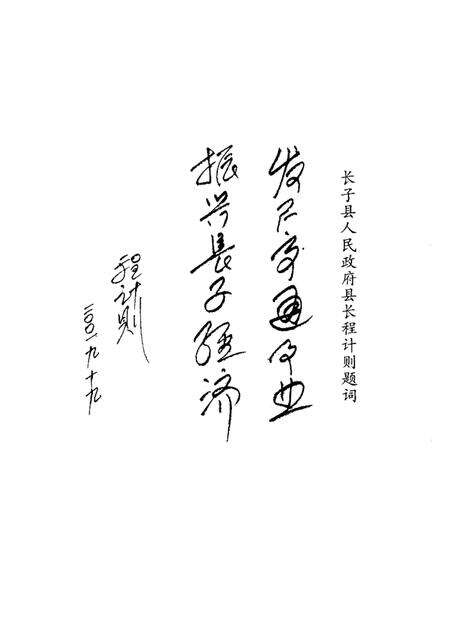 长子县人民政府县长程计则题词
发展交通事业
振兴長子经济
程计则
二〇〇一九十九